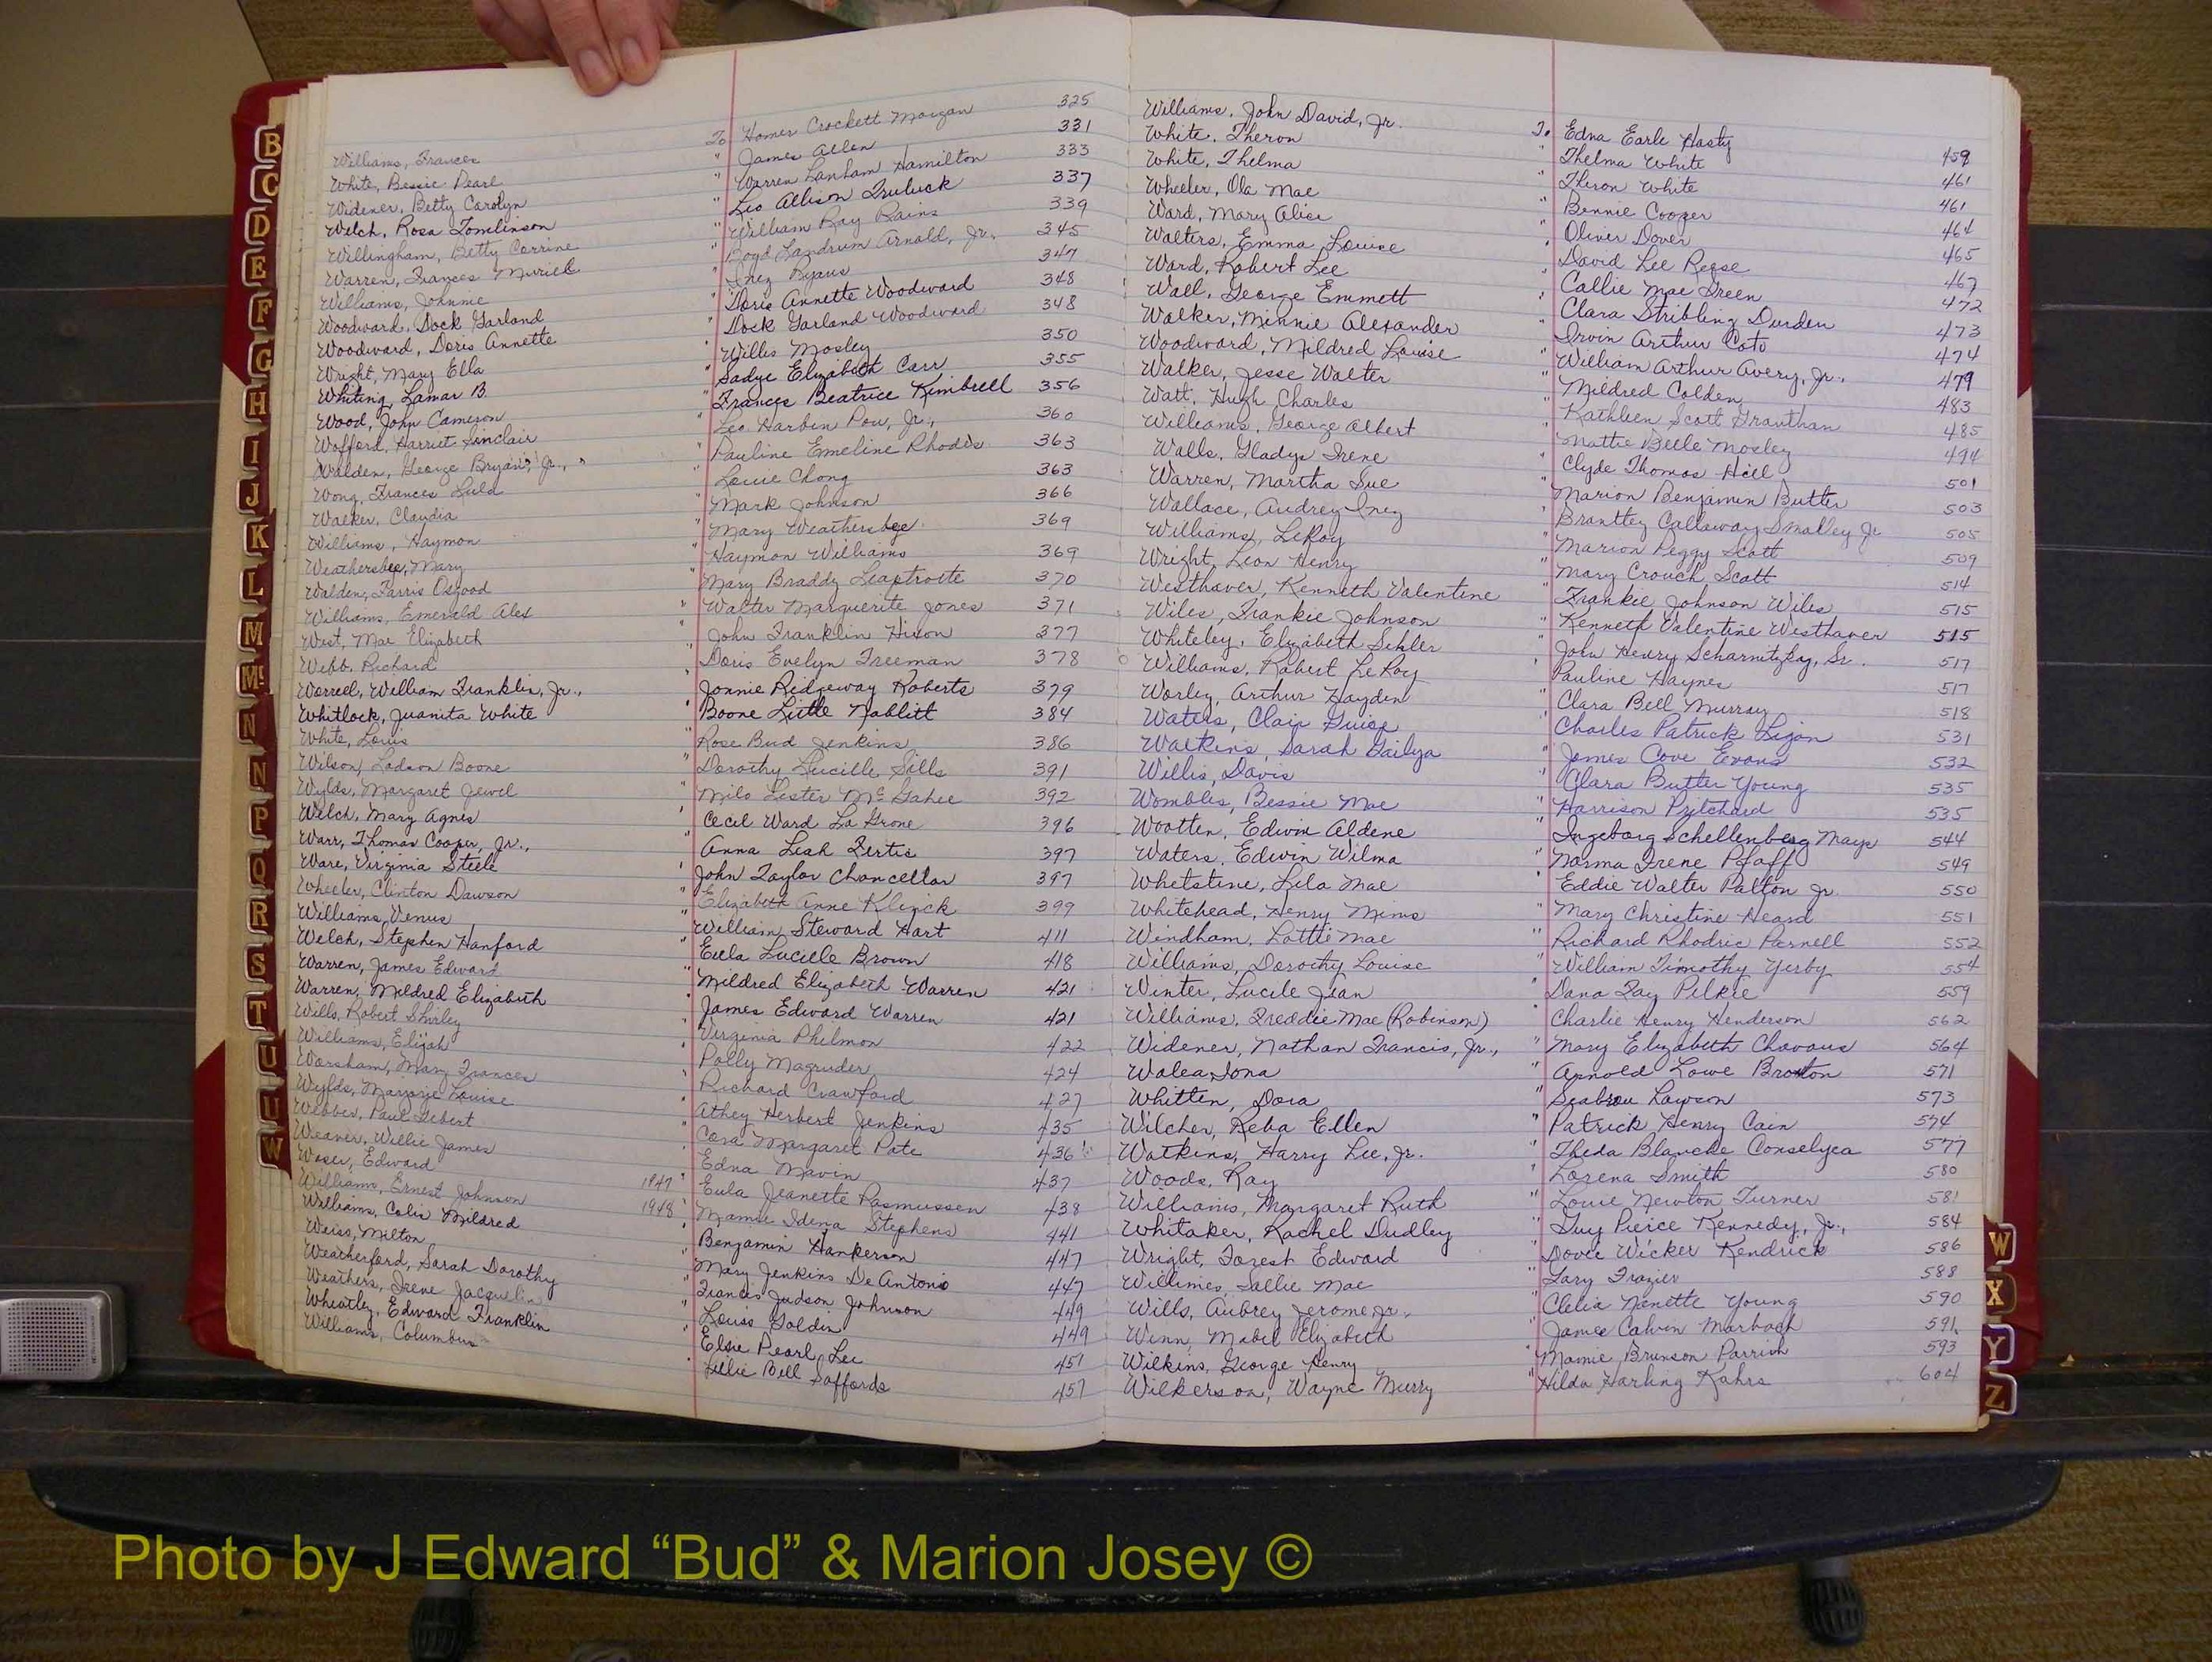 Williams, Frances To Homer Crockett Morgan 325
White, Bessie Pearl " James Allen 331
Widener, Betty Carolyn " Warren Lanham Hamilton 333
Welch, Rosa Tomlinson " Leo Allison Truluck 337
Willingham, Betty Corrine " William Ray Rains 339
Warren, Frances Muriel " Boyd Landrum Arnold, Jr. 345
Williams, Johnnie " Inez Ryans 347
Woodward, Dock Garland " Doris Annette Woodward 348
Woodward, Doris Annette " Dock Garland Woodward 348
Wright, Mary Ella " Willis Mosley 350
Whiting, Lamar B. " Sadye Elizabeth Carr 355
Wood, John Cameron " Frances Beatrice Kimbrell 356
Wofford, Harriet Sinclair " Leo Harbin Pou, Jr., 360
Walden, George Bryan, Jr., " Pauline Emeline Rhodes 363
Wong, Frances Lula " Louie Chong 363
Walker, Claudia " Mark Johnson 366
Williams, Haymon " Mary Weathersbee 369
Weathersbee, Mary " Haymon Williams 369
Walden, Farris Osgood " Mary Braddy Leaptrotte 370
Williams, Emerald Alex " Walter Marguerite Jones 371
West, Mae Elizabeth " John Franklin Hixon 377
Webb, Richard " Doris Evelyn Freeman 378
Worrell, William Franklin, Jr., " Jonnie Ridgeway Roberts 379
Whitlock, Juanita White " Boone Little Nablitt 384
White, Louis " Rose Bud Jenkins 386
Wilson, Ladson Boone " Dorothy Lucille Sills 391
Wylds, Margaret Jewel " Milo Lester McGahee 392
Welch, Mary Agnes " Cecil Ward La Grone 396
Warr, Thomas Cooper, Jr., " Anna Leah Tertis 397
Ware, Virginia Steele " John Taylor Chancellor 397
Wheeler, Clinton Dawson " Elizabeth Anne Klinck 399
Williams, Venus " William Steward Hart 411
Welch, Stephen Hanford " Eula Lucille Brown 418
Warren, James Edward " Mildred Elizabeth Warren 421
Warren, Mildred Elizabeth " James Edward Warren 421
Wills, Robert Shirley " Virginia Philmon 422
Williams, Elijah " Polly Magruder 424
Worsham, Mary Frances " Richard Crawford 427
Wylds, Marjorie Louise " Athey Herbert Jenkins 435
Webber, Paul Gebert " Cora Margaret Pate 436
Weaver, Willie James " Edna Mavin 437
Woser, Edward 1947 " Eula Jeanette Rasmussen 438
Williams, Ernest Johnson 1948 " Mamie Idema Stephens 441
Williams, Colie Mildred " Benjamin Hankerson 447
Weiss, Milton " Mary Jenkins De Antonio 447
Weatherford, Sarah Dorothy " Francis Judson Johnson 449
Weathers, Irene Jacquelin " Louis Golden 449
Wheatley, Edward Franklin " Elsie Pearl Lee 451
Williams, Columbus " Lillie Bell Saffords 457
Williams, John David, Jr. To Edna Earle Hasty 459
White, Theron " Thelma White 461
White, Thelma " Theron White 461
Wheeler, Ola Mae " Bennie Cooger 464
Ward, Mary Alice " Oliver Dover 465
Walters, Emma Louise " David Lee Reese 467
Ward, Robert Lee " Callie Mae Green 472
Wall, George Emmett " Clara Stribling Durden 473
Walker, Minnie Alexander " Irvin Arthur Coto 474
Woodward, Mildred Louise " William Arthur Avery, Jr., 479
Walker, Jesse Walter " Mildred Colden 483
Watt, Hugh Charles " Kathleen Scott Granthan 485
Williams, George Albert " Mattie Belle Mosley 494
Walls, Gladys Irene " Clyde Thomas Hill 501
Warren, Martha Sue " Marion Benjamin Butler 503
Wallace, Audrey Inez " Brantley Callaway Smalley Jr 505
Williams, LeRoy " Marion Peggy Scott 509
Wright, Leon Henry " Mary Crouch Scott 514
Westhaver, Kenneth Valentine " Frankie Johnson Wiles 515
Wiles, Frankie Johnson " Kenneth Valentine Westhaver 515
Whiteley, Elizabeth Sehler " John Henry Scharnitzky, Sr. 517
Williams, Robert LeRoy " Pauline Haynes 517
Worley, Arthur Hayden " Clara Bell Murray 518
Waters, Clair Guice " Charles Patrick Ligon 531
Watkins, Sarah Gailya " James Cove Evans 532
Willis, Davis " Clara Butler Young 535
Wombles, Bessie Mae " Harrison Pritchard 535
Wootten, Edwin Aldene " Ingeborg Schellenberg Mays 544
Waters, Edwin Wilma " Norma Irene Pfaff 549
Whetstine, Lila Mae " Eddie Walter Patton Jr. 550
Whitehead, Henry Mims " Mary Christine Heard 551
Windham, Lottie Mae " Richard Rhodric Parnell 552
Williams, Dorothy Louise " William Timothy Yerby 554
Winter, Lucile Jean " Dana Ray Pelkie 559
Williams, Freddie Mae (Robinson) " Charlie Henry Henderson 562
Widener, Nathan Francis, Jr., " Mary Elizabeth Chavous 564
Walea, Iona " Arnold Lowe Broxton 571
Whitten, Dora " Seabrou Lawson 573
Wilcher, Reba Ellen " Patrick Henry Cain 574
Watkins, Harry Lee, Jr. " Theda Blanche Conselyea 577
Woods, Ray " Lorena Smith 580
Williams, Margaret Ruth " Louie Newton Turner 581
Whitaker, Rachel Dudley " Guy Pierce Kennedy, Jr., 584
Wright, Forest Edward " Dovie Wicker Kendrick 586
Willimies, Sallie Mae " Lary Frazier 588
Wills, Aubrey Jerome, Jr. " Clelia Nanette Young 590
Winn, Mabel Elizabeth " James Calvin Marbach 591
Wilkins, George Henry " Mamie Brunson Parrish 593
Wilkerson, Wayne Murry " Hilda Harling Kahrs 604
B
C
D
E
F
G
H
I
J
K
L
M
Mc
N
N
P
Q
R
S
T
U
U
W
W
X
Y
Z
Photo by J Edward “Bud” & Marion Josey ©